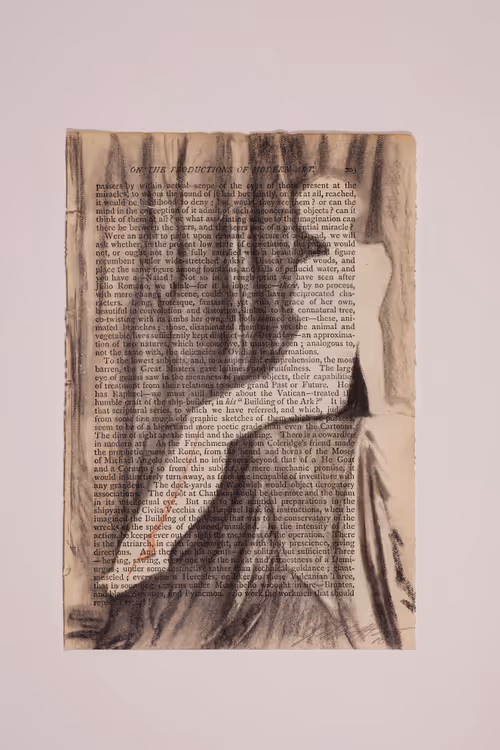 ON THE PRODUCTIONS OF MODERN ART.
passers by within actual scope of the eyes of those present at the
miracle, to whom the sound of it had but faintly, or not at all, reached,
it would be hardihood to deny; for would they see them? or can the
mind in the conception of it admit of such concerning objects? can it
think of them at all? or what associating league to the imagination can
there be between the seers, and the seers not of a presential miracle?
Were an artist to paint upon demand a picture of a Dryad, we will
ask whether, in the present low state of expectation, the patron would
not, or ought not to be fully satisfied with a beautiful figure
recumbent under wide-stretched oaks? woods, and
place the same figure among fountains, and falls of pellucid water, and
you have a Naiad! Not so in a rough print we have seen after
Julio Romano, we think—for it is long since—there, by no process,
with mere change of scene, could the figure have reciprocated cha-
racters. Long, grotesque, fantastic, yet with a grace of her own,
beautiful in convolution and distortion, linked to her connatural tree,
co-twisting with its limbs her own, till both seemed either—these, ani-
mated branches; those, disanimated members—yet the animal and
vegetable lives sufficiently kept distinct—his Dryad lay—an approxima-
tion of two natures, which to conceive, it must be seen; analogous to,
not the same with, the delicacies of Ovidian transformations.
To the lowest subjects, and, to a superficial comprehension, the most
barren, the Great Masters gave loftiness and fruitfulness. The large
eye of genius saw in the meanness of present objects, their capabilities
of treatment from their relations to some grand Past or Future. How
has Raphael—we must still linger about the Vatican—treated the
humble craft of the ship-builder, in his "Building of the Ark?" It is in
that scriptural series, to which we have referred, and which, judging
from some fine rough old graphic sketches of them which we possess,
seem to be of a higher and more poetic grade than even the Cartoons.
The dim of sight are the timid and the shrinking. There is a cowardice
in modern art. As the Frenchmen, of whom Coleridge's friend made
the prophetic guess at Rome, from the beard and horns of the Moses
of Michael Angelo collected no inferences beyond that of a He Goat
and a Cornuto; so from this subject, of mere mechanic promise, it
would instinctively turn away, as from one incapable of investiture with
any grandeur. The dock-yards at Woolwich would object derogatory
associations. The depôt at Chatham would be the mote and the beam
in its intellectual eye. But not to the nautical preparations in the
shipyards of Civita Vecchia did Raphael look for instructions, when he
imagined the Building of the Vessel that was to be conservatory of the
wrecks of the species of drowned mankind. In the intensity of the
action, he keeps ever out of sight the meanness of the operation. There
is the Patriarch, in calm forethought, and with holy prescience, giving
directions. And there are his agents—the solitary but sufficient Three
—hewing, sawing, every one with the might and earnestness of a Demi-
urgus; under some instinctive rather than technical guidance; giant-
muscled; every one a Hercules, or liker to those Vulcanian Three,
that in sounding caverns under Mongibello wrought in fire—Brontes,
and black Steropes, and Pyracmon. So work the workmen that should